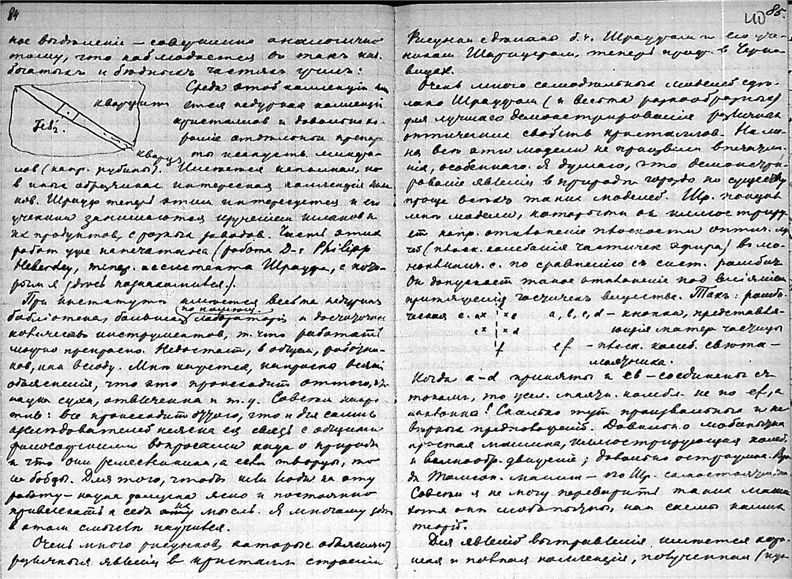 84
ное выделение – совершенно аналогично
тому, что наблюдается в так наз.
богатых и бедных частях
Среди этой коллекции
кварцит
ется недурная коллекция
кристаллов и довольно
FeS2.
отдельной
кварц
лов (напр. рубины). Имеется неполная, но
в иных образчиках интересная коллекция
ков. Шрауф теперь этим интересуется и его
ученики занимаются изучением шлаков и
их продуктов, с разных заводов. Часть этих
работ уже напечатана (работа D-r Philipp
Heberdey, тепер. ассистента Шрауфа, с кото-
рым я здесь познакомился).
При институте имеется весьма недурная
библиотека, большая
по
и достаточное
количество инструментов, т. что работать
можно прекрасно. Недостает, в общем, работни-
ков, как всюду. Мне кажется, напрасно
объяснения, что это происходит оттого, что
наука суха, отвлеченна и т. д. Совсем напро-
тив: все происходит оттого, что и для самих
исследователей неясна ея связь с общими
философскими вопросами наук о природе
и что они ремесленники, а если творцы, то
не бойцы. Для того, чтобы шли люди на эту
работу – наука должна ясно и постоянно
привлекать к себе мысль. Я многому здесь
в этом смысле научился.
Очень много рисунков, которые объясняют
различныя явления в кристалл. строении
85.
Рисунки сделаны б. ч. Шрауфом и его уче-
ником теперь проф. в Черно-
вицах.
Очень много самодельных моделей сде-
лано Шрауфом (и весьма разнообразных)
для лучшаго демонстрирования различных
оптических свойств кристаллов. На ме-
ня все эти модели не произвели впечатле-
ния, особеннаго. Я думаю, что демонстри-
рование явлений в природе гораздо по существу
проще всех таких моделей. Шр. показал
мне модели, которыми он иллюстриру-
ет напр. отклонение плоскости оптич.
(плоск. колебания частичек эфира) в мо-
ноклинич. с. по сравнению с сист. ромбич.
Он допускает такое отклонение под влиянием
притяжения частичек вещества. Так: ромби-
ческая с. ax x c
a, b, c, d – кнопки, представля-
ющия матер. частицы
f
ef – плоск. колеб. свето-
маятника.
Когда a-d приняты и cb – соединены с
током, то маятн. колебл. не по ef, а
наклонно! Сколько тут произвольных и не-
верных предположений. Довольно любопытна
простая машина, иллюстрирующая колеб.
и волнообр. движения; довольно остроумна.
Совсем я не могу переварить таких машин,
хотя они любопытны, как схемы наших
теорий.
Для явлений вытравления, имеется хоро-
шая и полная коллекция, полученная